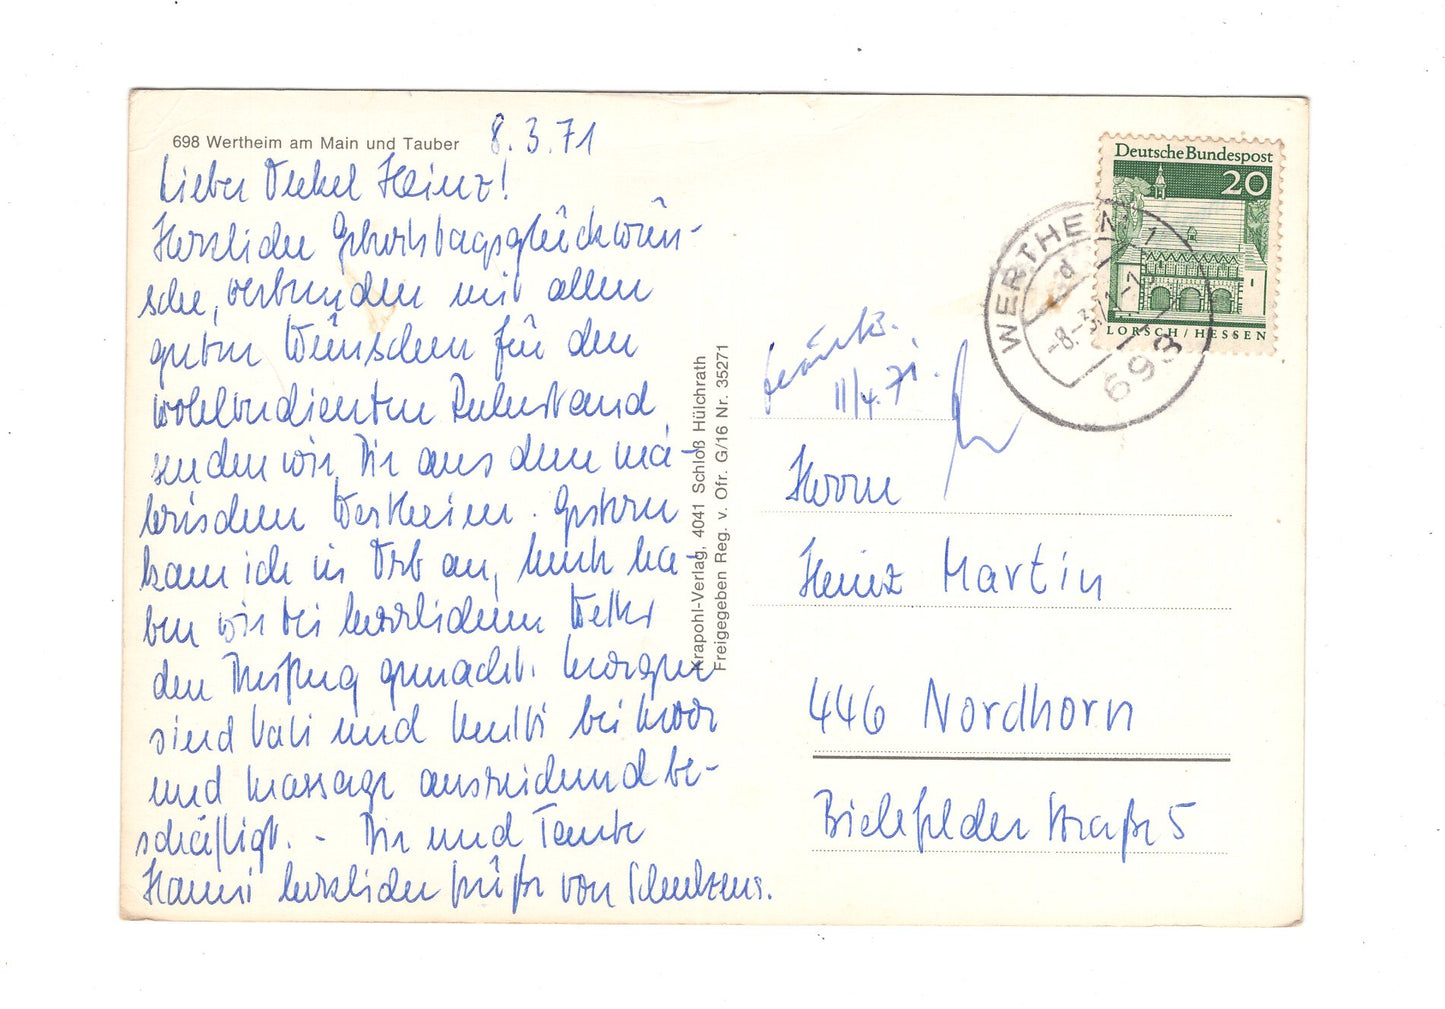 698 Wertheim am Main und Tauber
8.3.71
Lieber Onkel Heinz!
Herzliche Geburtstagsglückwün-
sche, verbunden mit allen
guten Wünschen für den
wohlverdienten Ruhestand
senden wir Dir aus dem ma-
lerischen Wertheim. Gestern
kam ich in Orb an, heute ha-
ben wir bei herrlichem Wetter
den Ausflug gemacht. Morgen
sind Vati und Mutti bei Moor
und Massage ausreichend be-
schäftigt. - Dir und Tante
Hanni herzliche Grüße von Schulzens.
Krapohl-Verlag, 4041 Schloß Hülchrath
Freigegeben Reg. v. Ofr. G/16 Nr. 35271
Deutsche Bundespost
20
LORSCH/HESSEN
WERTHEIM 1
d
-8.-3.71
693
II/4.71.
Herrn
Heinz Martin
446 Nordhorn
Bielefelder Straße 5